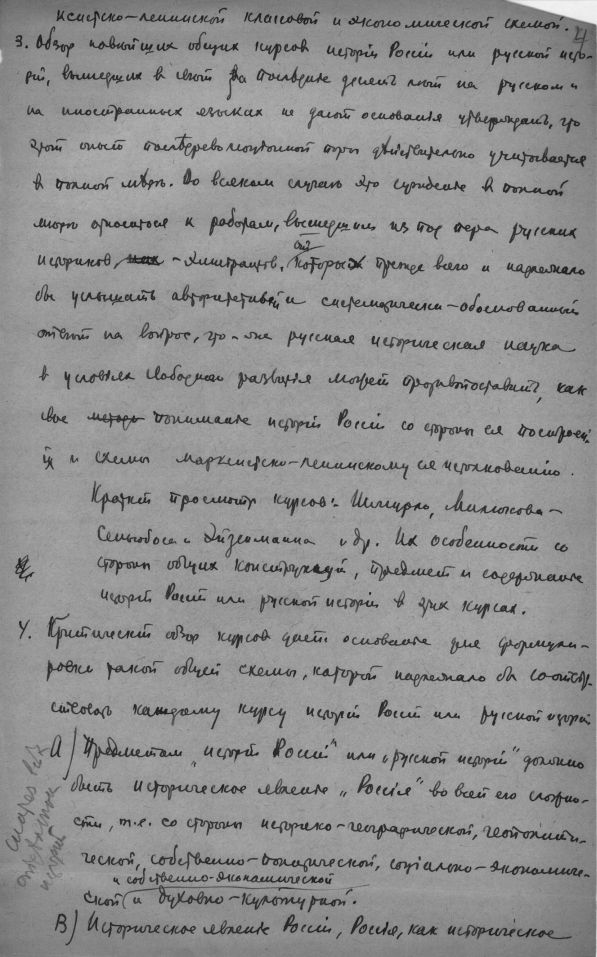 ксистско-ленинской классовой и экономической схемой. 4
3. Обзор новейших общих курсов исторіи Россіи или русской исто-
ріи, вышедших в свет за последніе десять лет на русском и
на иностранных языках не дает основанія утверждать, что
этот опыт послереволюціонной поры действительно учитывается
в полной мере. Во всяком случае это сужденіе в полной
мере относится к работам, вышедшим из под пера русских
историков-эмигрантов, от которых прежде всего и надлежало
бы услышать авторитетный и систематически-обоснованный
ответ на вопрос, что-же русская историческая наука
в условіях свободнаго развитія может противопоставить, как
свое методы пониманіе исторіи Россіи со стороны ея построе-
нія и схемы марксистско-ленинскому ея истолкованію.
Краткій просмотр курсов: Шмурло, Милюкова-
Сеньобоса и Эйзенманна и др. Их особенности со
стороны общих конструкцій, предмет и содержаніе
исторіи Россіи или русской исторіи в этих курсах.
4. Критическій обзор курсов дает основаніе для формули-
ровки такой общей схемы, которой надлежало бы соответ-
ствовать каждому курсу исторіи Россіи или русской исторіи
А) Предметом „исторіи Россіи" или „русской исторіи" должно
быть историческое явленіе „Россія" во всей его сложно-
сти, т.е. со стороны историко-географической, геополити-
ческой, собственно-политической, соціально-экономиче-
и собственно-экономической
ской и духовно-культурной.
В) Историческое явленіе Россіи, Россія, как историческое